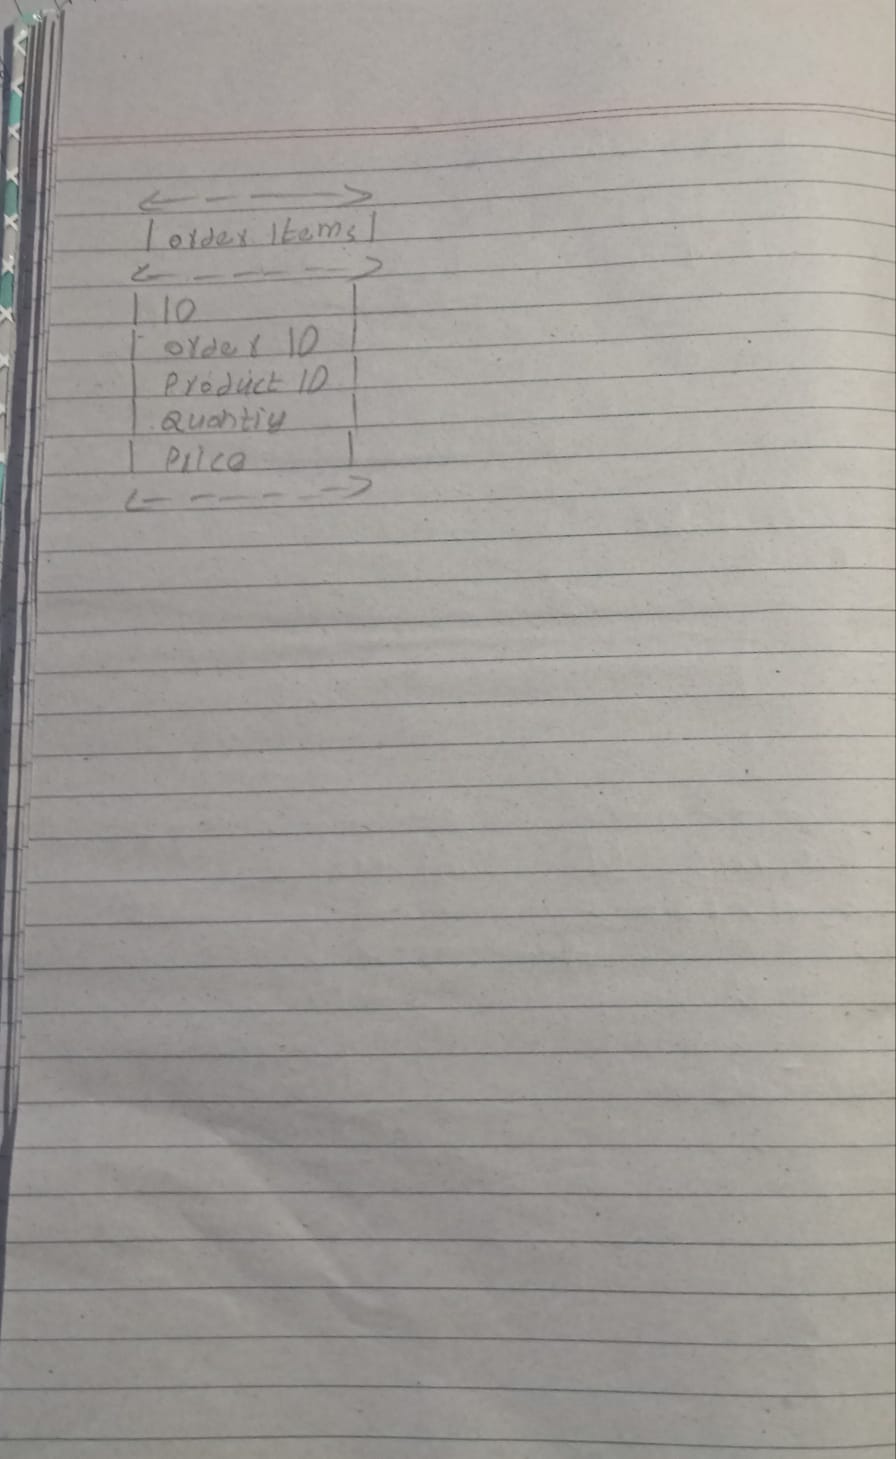 order Items
ID
order ID
Product ID
Quantiy
Price